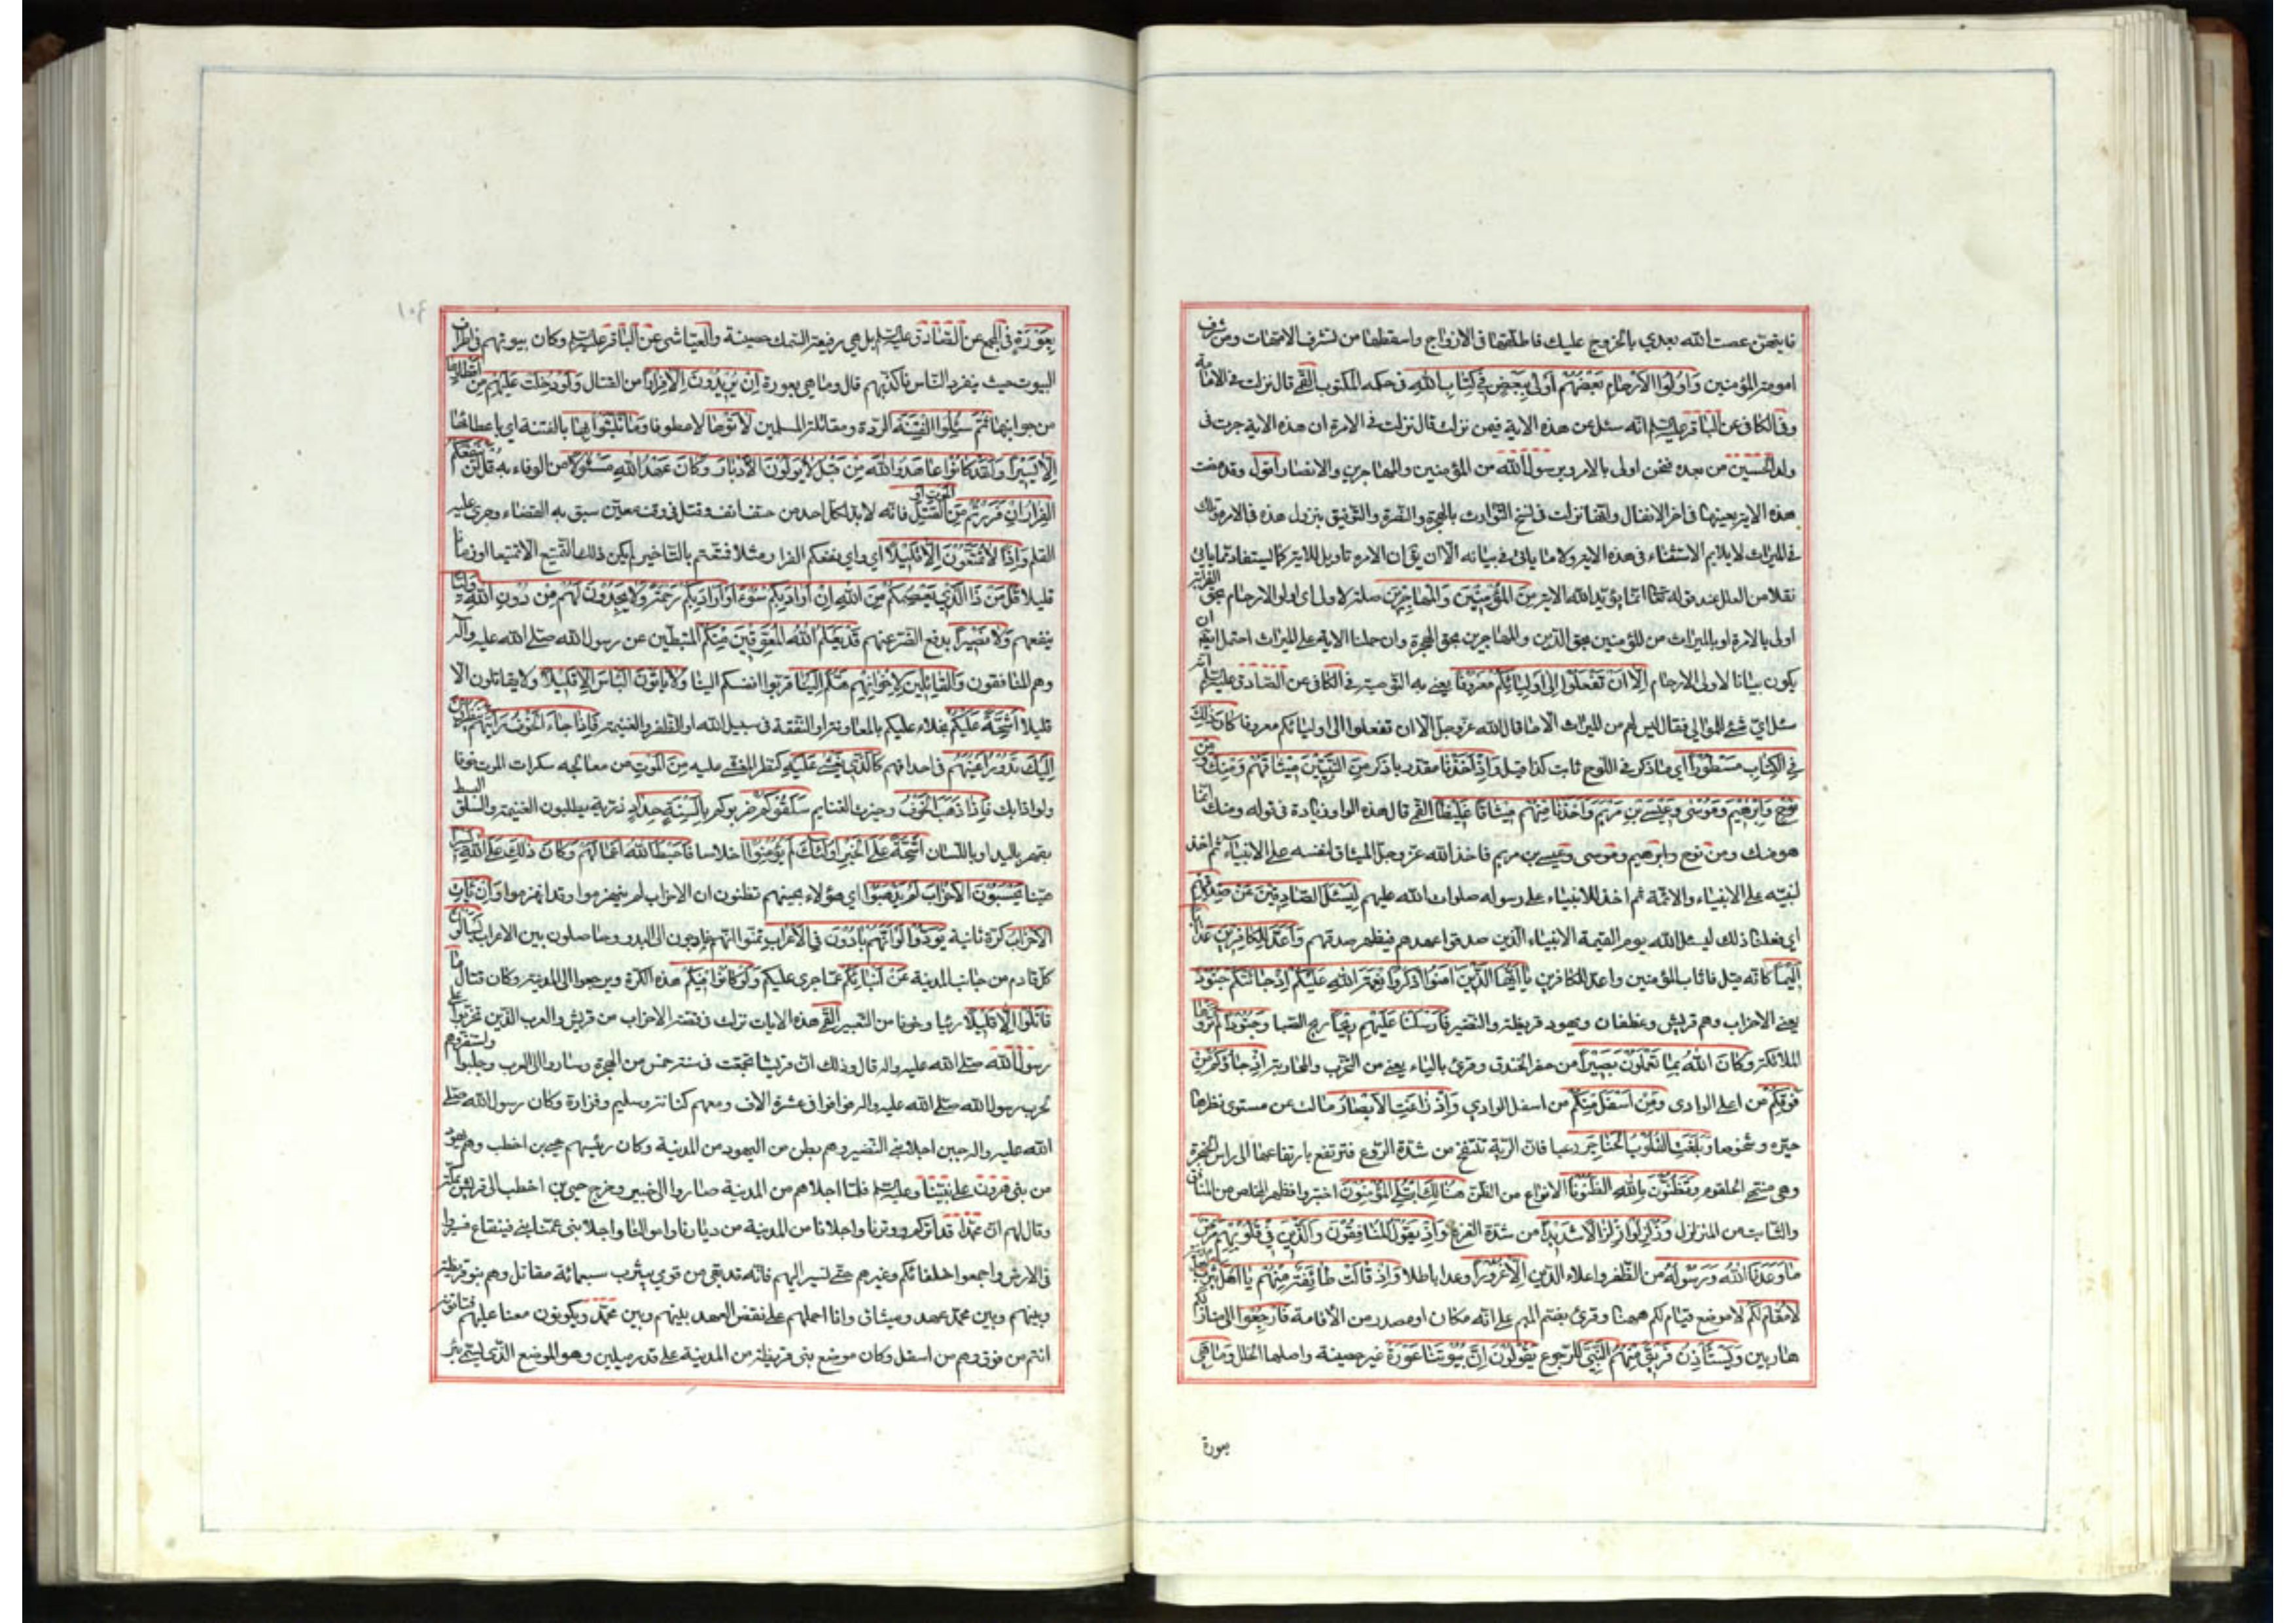 فايتهن عصت الله بعدي بالخروج عليك فاطلقها في الازواج واسقطها من تشرف الامهات ومن شرف
امومة المؤمنين وَاُولُوا الْاَرْحامِ بَعْضُهُمْ اَوْلى بِبَعْضٍ في كِتابِ اللهِ في حكمه المكتوب القمي قال نزلت في الامامة
وفي الكافي عن الباقر عليه السلم انه سئل عن هذه الاية فيمن نزلت قال نزلت في الامرة ان هذه الاية جرت في
ولد الحسين من بعده فنحن اولى بالامر وبرسول الله من المؤمنين والمهاجرين والانصار اقول وقد مضت
هذه الاية بعينها في اخر الانفال وانها نزلت في نسخ التوارث بالهجرة والنصرة والتوفيق بنزول هذه في الامرة وتلك
في الميراث لا يلايم الاستثناء في هذه الاية ولا ما ياتي في بيانه الا ان يق ان الامرة تاويل للاية كما يستفاد مما ياتي
نقلا من العلل عند قوله تعالى انما يؤيد الله الاية مِنَ الْمُؤْمِنينَ وَالْمُهاجِرينَ صلة لاولى اي اولوا الارحام بحق القرابة
اولى بالامرة او بالميراث من المؤمنين بحق الدين والمهاجرين بحق الهجرة وان حملنا الاية على الميراث احتمل ايضا ان
يكون بيانا لاولى الارحام اِلّا اَنْ تَفْعَلُوا اِلى اَوْلِيائِكُمْ مَعْرُوفًا يعني به التوصية في الكافي عن الصادق عليه السلم انه
سئل اي شئ للموالي فقال ليس لهم من الميراث الا ما قال الله عز وجل الا ان تفعلوا الى اوليائكم معروفا كانَ ذلِكَ
فِي الْكِتابِ مَسْطُورًا اي ما ذكر في اللوح ثابت كذا قيل وَاِذْ اَخَذْنا مقدر باذكر مِنَ النَّبِيّينَ ميثاقَهُمْ وَمِنْكَ وَمِنْ
نُوحٍ وَاِبْرهيمَ وَمُوسى وَعيسَى بْنِ مَرْيَمَ وَاَخَذْنا مِنْهُمْ ميثاقًا غَليظًا القمي قال هذه الواو زيادة في قوله ومنك انما
هو منك ومن نوح وابرهيم وموسى وعيسى بن مريم فاخذ الله عز وجل الميثاق لنفسه على الانبياء ثم اخذ
لنبيه على الانبياء والائمة ثم اخذ للانبياء على رسوله صلوات الله عليهم لِيَسْئَلَ الصّادِقينَ عَنْ صِدْقِهِمْ
اي فعلنا ذلك ليسئل الله يوم القيمة الانبياء الذين صدقوا عهدهم فيظهر صدقهم وَاَعَدَّ لِلْكافِرينَ عَذابًا
اَليمًا كانه قيل فاثاب المؤمنين واعد للكافرين يا اَيُّهَا الَّذينَ امَنُوا اذْكُرُوا نِعْمَةَ اللهِ عَلَيْكُمْ اِذْ جاءَتْكُمْ جُنُودٌ
يعني الاحزاب وهم قريش وغطفان ويهود قريظة والنضير فَاَرْسَلْنا عَلَيْهِمْ ريحًا ريح الصبا وَجُنُودًا لَمْ تَرَوْها
الملائكة وَكانَ اللهُ بِما تَعْمَلُونَ بَصيرًا من حفر الخندق وقرئ بالياء يعني من التحزب والمحاربة اِذْ جاؤُكُمْ مِنْ
فَوْقِكُمْ من اعلى الوادي وَمِنْ اَسْفَلَ مِنْكُمْ من اسفل الوادي وَاِذْ زاغَتِ الْاَبْصارُ مالت عن مستوى نظرها
حيرة وشخوصا وَبَلَغَتِ الْقُلُوبُ الْحَناجِرَ رعبا فان الرية تنتفخ من شدة الروع فترتفع بارتفاعها الى راس الحنجرة
وهي منتهى الحلقوم وَتَظُنُّونَ بِاللهِ الظُّنُونَا الانواع من الظن هُنالِكَ ابْتُلِيَ الْمُؤْمِنُونَ اختبروا فظهر المخلص من المنافق
والثابت من المتزلزل وَزُلْزِلُوا زِلْزالًا شَديدًا من شدة الفزع وَاِذْ يَقُولُ الْمُنافِقُونَ وَالَّذينَ في قُلُوبِهِمْ مَرَضٌ
ما وَعَدَنَا اللهُ وَرَسُولُهُ من الظفر واعلاء الدين اِلّا غُرُورًا وعدا باطلا وَاِذْ قالَتْ طائِفَةٌ مِنْهُمْ يا اَهْلَ يَثْرِبَ
لا مُقامَ لَكُمْ لا موضع قيام لكم ههنا وقرئ بضم الميم على انه مكان او مصدر من الاقامة فَارْجِعُوا الى منازلكم
هاربين وَيَسْتَاْذِنُ فَريقٌ مِنْهُمُ النَّبِيَّ للرجوع يَقُولُونَ اِنَّ بُيُوتَنا عَوْرَةٌ غير حصينة واصلها الخلل وَما هِيَ
بعورة
بِعَوْرَةٍ في المجمع عن الصادق عليه السلم بل هي رفيعة السمك حصينة والعياشي عن الباقر عليه السلم وكان بيوتهم في اطراف
البيوت حيث ينفرد الناس فاكذبهم قال وما هي بعورة اِنْ يُريدُونَ اِلّا فِرارًا من القتال وَلَوْ دُخِلَتْ عَلَيْهِمْ مِنْ اَقْطارِها
من جوانبها ثُمَّ سُئِلُوا الْفِتْنَةَ الردة ومقاتلة المسلمين لَاتَوْها لاعطوها وَما تَلَبَّثُوا بِها بالفتنة اي باعطائها
اِلّا يَسيرًا وَلَقَدْ كانُوا عاهَدُوا اللهَ مِنْ قَبْلُ لا يُوَلُّونَ الْاَدْبارَ وَكانَ عَهْدُ اللهِ مَسْئُولًا من الوفاء به قُلْ لَنْ يَنْفَعَكُمُ
الْفِرارُ اِنْ فَرَرْتُمْ مِنَ الْمَوْتِ اَوِ الْقَتْلِ فانه لا بد لكل احد من حتف انف وقتل في وقت معين سبق به القضاء وجرى عليه
القلم وَاِذًا لا تُمَتَّعُونَ اِلّا قَليلًا اي واي نفعكم الفرار مثلا فتمتعتم بالتاخير لم يكن ذلك التمتيع الا تمتيعا او زمانا
قليلا قُلْ مَنْ ذَا الَّذي يَعْصِمُكُمْ مِنَ اللهِ اِنْ اَرادَ بِكُمْ سُوءًا اَوْ اَرادَ بِكُمْ رَحْمَةً وَلا يَجِدُونَ لَهُمْ مِنْ دُونِ اللهِ وَلِيًّا
ينفعهم وَلا نَصيرًا يدفع الضر عنهم قَدْ يَعْلَمُ اللهُ الْمُعَوِّقينَ مِنْكُمْ المثبطين عن رسول الله صلى الله عليه وآله
وهم المنافقون وَالْقائِلينَ لِاِخْوانِهِمْ هَلُمَّ اِلَيْنا قربوا انفسكم الينا وَلا يَاْتُونَ الْبَاْسَ اِلّا قَليلًا ولا يقاتلون الا
قليلا اَشِحَّةً عَلَيْكُمْ بخلاء عليكم بالمعاونة او النفقة في سبيل الله او الظفر والغنيمة فَاِذا جاءَ الْخَوْفُ رَاَيْتَهُمْ يَنْظُرُونَ
اِلَيْكَ تَدُورُ اَعْيُنُهُمْ في احداقهم كَالَّذي يُغْشى عَلَيْهِ كنظر المغشي عليه مِنَ الْمَوْتِ من معالجة سكرات الموت خوفا
ولواذا بك فَاِذا ذَهَبَ الْخَوْفُ وحيزت الغنايم سَلَقُوكُمْ ضربوكم بِاَلْسِنَةٍ حِدادٍ ذربة يطلبون الغنيمة والسلق البسط
بقهر باليد او باللسان اَشِحَّةً عَلَى الْخَيْرِ اُولئِكَ لَمْ يُؤْمِنُوا اخلاصا فَاَحْبَطَ اللهُ اَعْمالَهُمْ وَكانَ ذلِكَ عَلَى اللهِ يَسيرًا
هينا يَحْسَبُونَ الْاَحْزابَ لَمْ يَذْهَبُوا اي هؤلاء بجبنهم تظنون ان الاحزاب لم ينهزموا وقد انهزموا وَاِنْ يَاْتِ
الْاَحْزابُ كرة ثانية يَوَدُّوا لَوْ اَنَّهُمْ بادُونَ فِي الْاَعْرابِ تمنوا انهم خارجون الى البدو وحاصلون بين الاعراب يَسْاَلُونَ
كل قادم من جانب المدينة عَنْ اَنْبائِكُمْ عما جرى عليكم وَلَوْ كانُوا فيكُمْ هذه الكرة ولم يرجعوا الى المدينة وكان قتال ما
قاتَلُوا اِلّا قَليلًا رئيا وخوفا من التعيير القمي هذه الايات نزلت في قصة الاحزاب من قريش والعرب الذين تحزبوا على
رسول الله صلى الله عليه واله قال وذلك ان قريشا تجمعت في سنة خمس من الهجرة وساروا الى العرب وجلبوا واستفزوهم
لحرب رسول الله صلى الله عليه واله فوافوا في عشرة الاف ومعهم كنانة وسليم وفزارة وكان رسول الله صلى
الله عليه واله حين اجلا بني النضير وهم بطن من اليهود من المدينة وكان رئيسهم حيي بن اخطب وهم يهود
من بني هرون على نبينا وعليه السلم فلما اجلاهم من المدينة صاروا الى خيبر وخرج حيي بن اخطب الى قريش بمكة
وقال لهم ان محمدا قد وتركم ووترنا واجلانا من المدينة من ديارنا واموالنا واجلا بني عمنا بني قينقاع فسيروا
في الارض واجمعوا حلفائكم وغيرهم حتى نسير اليهم فانه قد بقي من قومي بيثرب سبعمائة مقاتل وهم بنو قريظة
وبينهم وبين محمد عهد وميثاق وانا احملهم على نقض العهد بينهم وبين محمد ويكونون معنا عليهم فتاتونه
انتم من فوق وهم من اسفل وكان موضع بني قريظة من المدينة على قدر ميلين وهو الموضع الذي يسمى بئر